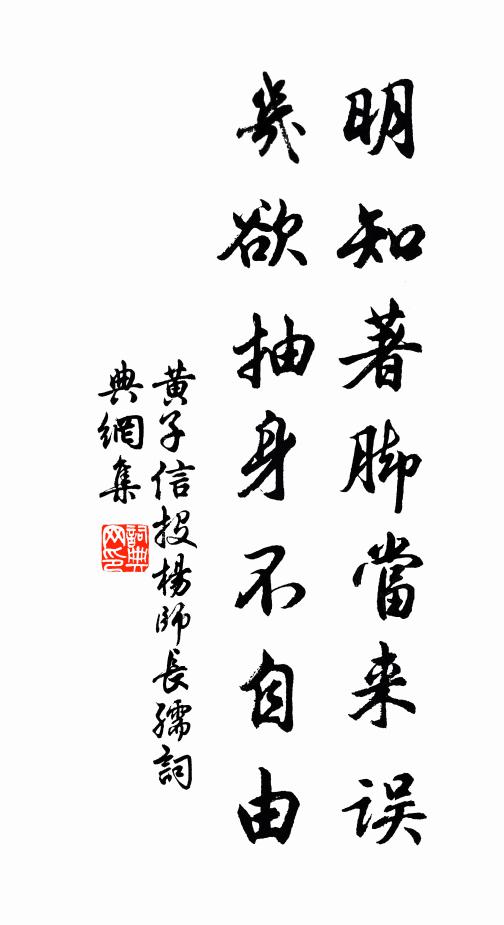 明知著脚當来误
幾欲抽身不自由
黄子信投楊師長孺詞
典網集
詞典
网印